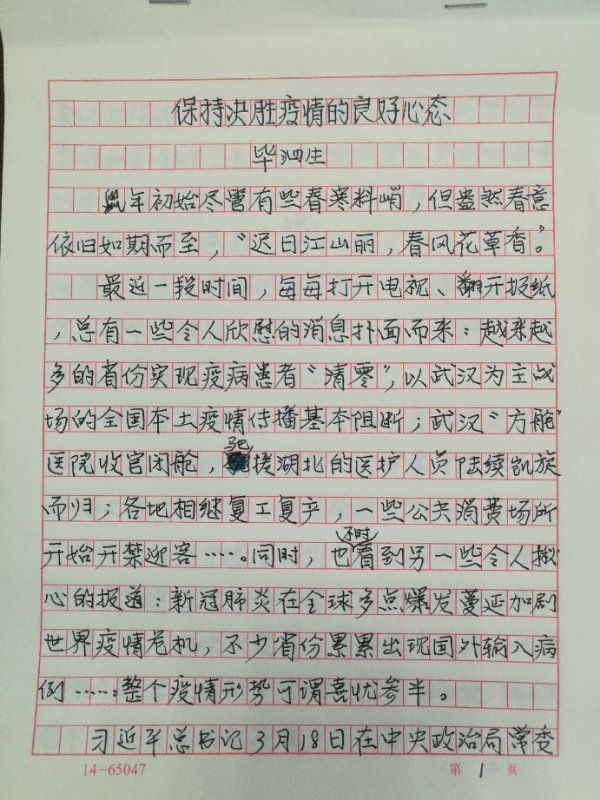 保持决胜疫情的良好心态
毕泗生
鼠年初始尽管有些春寒料峭，但盎然春意
依旧如期而至，“迟日江山丽，春风花草香”。
最近一段时间，每每打开电视、翻开报纸
，总有一些令人欣慰的消息扑面而来：越来越
多的省份实现疫病患者“清零”，以武汉为主战
场的全国本土疫情传播基本阻断；武汉“方舱”
医院收官闭舱，驰援湖北的医护人员陆续凯旋
而归；各地相继复工复产，一些公共消费场所
开始开禁迎客……。同时，也不时看到另一些令人揪
心的报道：新冠肺炎在全球多点爆发蔓延加剧
世界疫情危机，不少省份累累出现国外输入病
例……；整个疫情形势可谓喜忧参半。
习近平总书记3月18日在中央政治局常委
14-65047 第 1 页